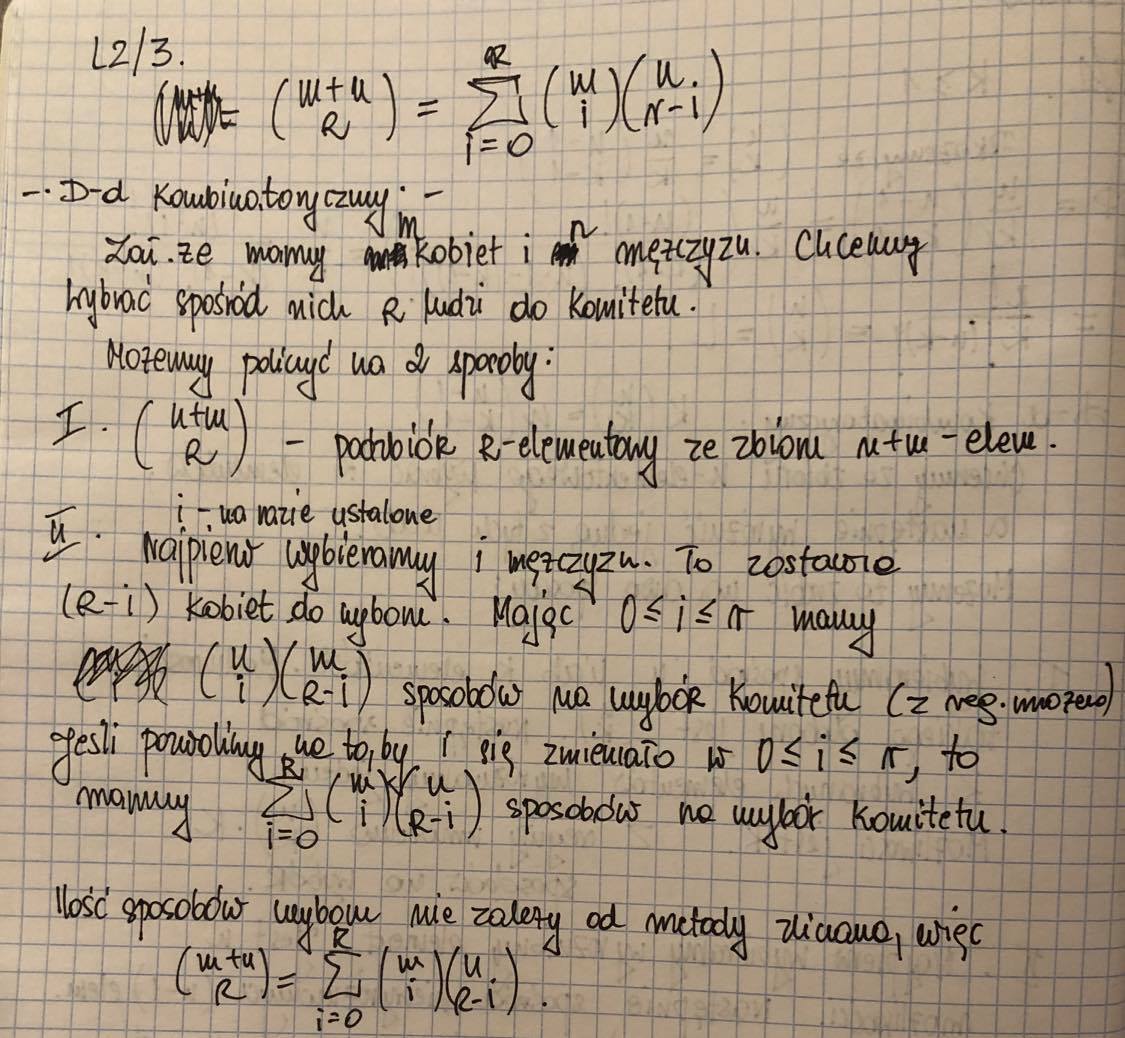 L2/3.
(m+n R) = R ∑ i=0 (m i)(n r-i)
-. D-d kombinatoryczny. -
Zał. że mamy m kobiet i n mężczyzn. Chcemy
wybrać spośród nich R ludzi do komitetu.
Możemy policzyć na 2 sposoby:
I. (n+m R) - podzbiór R-elementowy ze zbioru n+m-elem.
i - na razie ustalone
II. Najpierw wybieramy i mężczyzn. To zostawia
(R-i) kobiet do wyboru. Mając 0 ≤ i ≤ r mamy
(n i)(m R-i) sposobów na wybór komitetu (z reg. mnożenia)
Jeśli pozwolimy na to, by i się zmieniało w 0 ≤ i ≤ r, to
mamy R ∑ i=0 (m i)(n R-i) sposobów na wybór komitetu.
Ilość sposobów wyboru nie zależy od metody zliczana, więc
(m+n R) = R ∑ i=0 (m i)(n R-i).